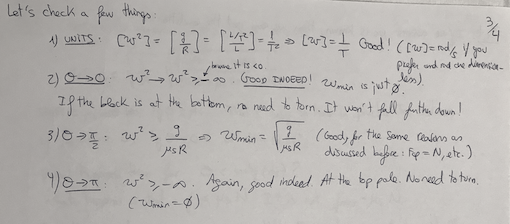 Let's check a few things:
3/4
1) UNITS: [w²] = [g/R] = [L/T²/L] = 1/T² ⇒ [w] = 1/T Good! ([w] = rad/s if you prefer and rad are dimensionless).
because it is <0
2) θ→0: w² → w² ≥ -∞. GOOD INDEED! Wmin is just Ø.
If the block is at the bottom, no need to turn. It won't fall further down!
3) θ→π/2: w² ≥ g/μsR ⇒ Wmin = √g/μsR (Good, for the same reasons as
discussed before: Fcp = N, etc.)
4) θ→π: w² ≥ -∞. Again, good indeed. At the top pole. No need to turn.
(Wmin = Ø)